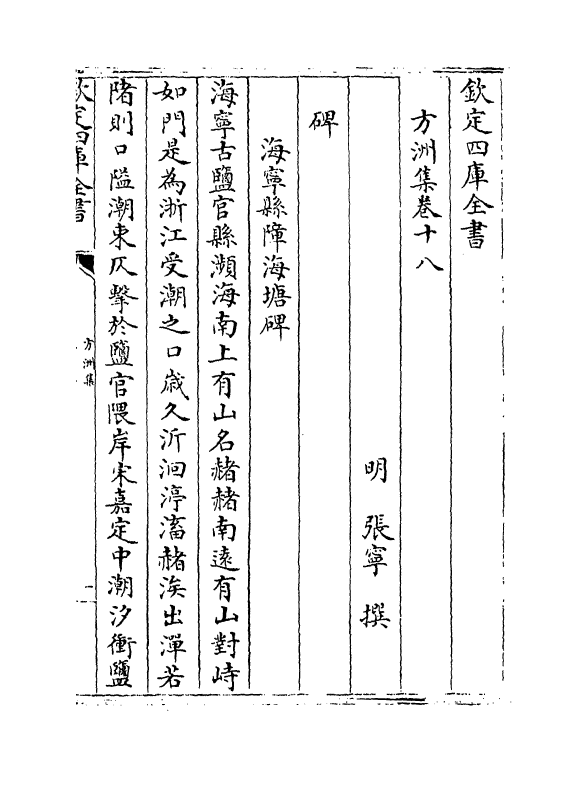 欽定四庫全書
方洲集卷十八
明 張寧 撰
碑
海寧縣障海塘碑
海寧古鹽官縣瀕海南上有山名赭赭南遠有山對峙
如門是為浙江受潮之口歲久沂洄渟滀赭涘出潬若
陼則口隘潮束仄擊於鹽官隈岸宋嘉定中潮汐衝鹽
欽定四庫全書
方洲集
一